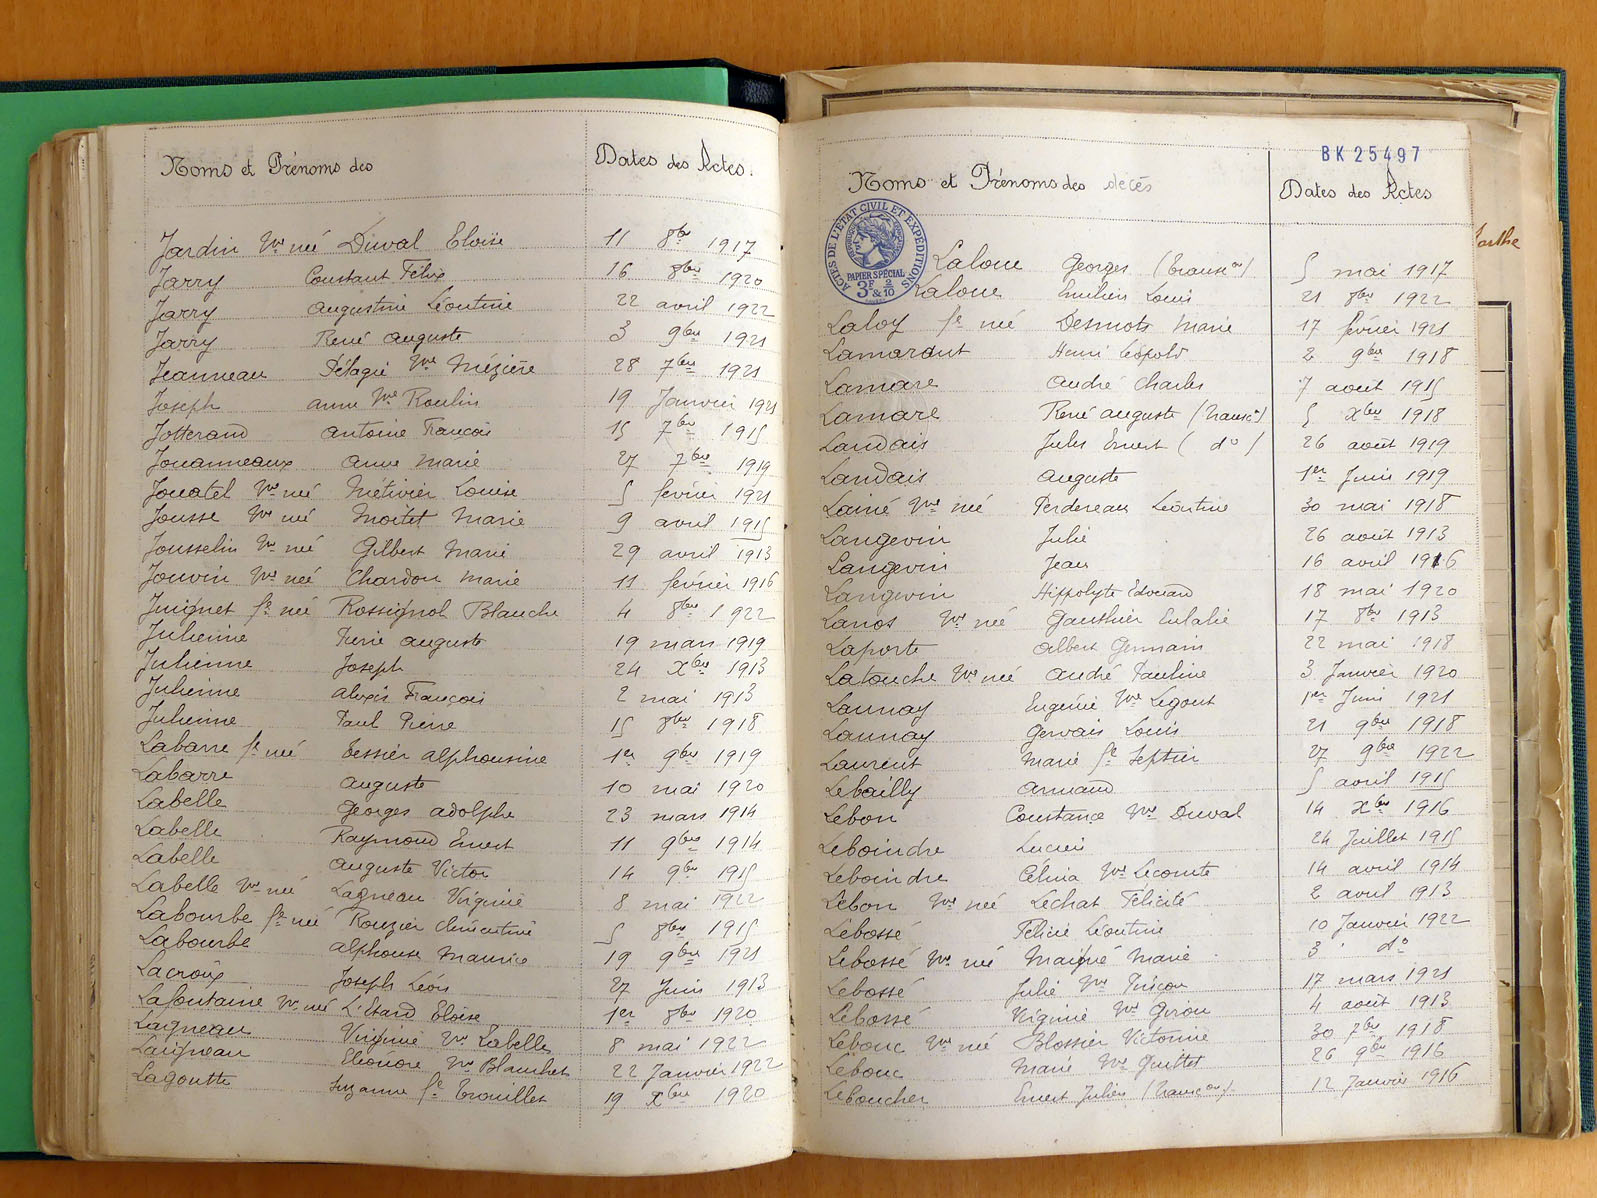 Noms et Prénoms des Dates des Actes.
Jardin Vve née Duval Eloïse 11 8bre 1917
Jarry Constant Félix 16 8bre 1920
Jarry Augustine Léontine 22 avril 1922
Jarry René Auguste 3 9bre 1921
Jeanneau Pélagie Vve Mézière 28 7bre 1921
Joseph Anne Vve Roulin 19 Janvier 1921
Jotterand Antoine François 15 7bre 1915
Jouanneaux Anne Marie 27 7bre 1919
Jouatel Vve née Métivier Louise 5 février 1921
Jousse Vve née Moitet Marie 9 avril 1915
Jousselin Vve née Gilbert Marie 29 avril 1913
Jouvin Vve née Chardon Marie 11 février 1916
Juignet fe née Rossignol Blanche 4 8bre 1922
Julienne Pierre Auguste 19 mars 1919
Julienne Joseph 24 Xbre 1913
Julienne Alexis François 2 mai 1913
Julienne Paul Pierre 15 8bre 1918
Labarre fe née Tessier Alphonsine 1er 9bre 1919
Labarre Auguste 10 mai 1920
Labelle Georges Adolphe 23 mars 1914
Labelle Raymond Ernest 11 9bre 1914
Labelle Auguste Victor 14 9bre 1915
Labelle Vve née Lagneau Virginie 8 mai 1922
Labourbe fe née Rouzier Clémentine 5 8bre 1915
Labourbe Alphonse Maurice 19 9bre 1921
Lacroix Joseph Léon 27 Juin 1913
Lafontaine Vve née L'Etard Eloïse 1er 8bre 1920
Lagneau Virginie Vve Labelle 8 mai 1922
Laigneau Eléonore Vve Blanchet 22 Janvier 1922
Lagoutte Suzanne fe Trouillet 19 Xbre 1920
BK 25497
Noms et Prénoms des décès Dates des Actes
ACTES DE L'ETAT CIVIL ET EXPEDITIONS
PAPIER SPÉCIAL
3F & 2/10
Laloue Georges (Transon) 5 mai 1917
Laloue Emilien Louis 21 8bre 1922
Laloy fe née Desmots Marie 17 février 1921
Lamardut Henri Léopold 2 9bre 1918
Lamare André Charles 7 août 1915
Lamare René Auguste (Transon) 5 Xbre 1918
Landais Jules Ernest (do) 26 août 1919
Landais Auguste 1er Juin 1919
Lainé Vve née Perdereau Léontine 30 mai 1918
Langevin Julie 26 août 1913
Langevin Jean 16 avril 1916
Langevin Hippolyte Edouard 18 mai 1920
Lanos Vve née Gauthier Eulalie 17 8bre 1913
Laporte Albert Germain 22 mai 1918
Latouche Vve née André Pauline 3 Janvier 1920
Launay Eugénie Vve Legout 1er Juin 1921
Launay Gervais Louis 21 9bre 1918
Laurent Marie fe Septier 27 9bre 1922
Lebailly Armand 5 avril 1915
Lebon Constance Vve Duval 14 Xbre 1916
Leboindre Lucien 24 Juillet 1915
Leboindre Célina Vve Lecomte 14 avril 1914
Lebon Vve née Lechat Félicité 2 avril 1913
Lebossé Félicie Léontine 10 Janvier 1922
Lebossé Vve née Maigné Marie 3 do
Lebossé Julie Vve 17 mars 1921
Lebossé Virginie Vve Girou 4 août 1913
Lebouc Vve née Blossier Victorine 30 7bre 1918
Lebouc Marie Vve Guittet 26 9bre 1916
Leboucher Ernest Julien (Transon) 12 Janvier 1916